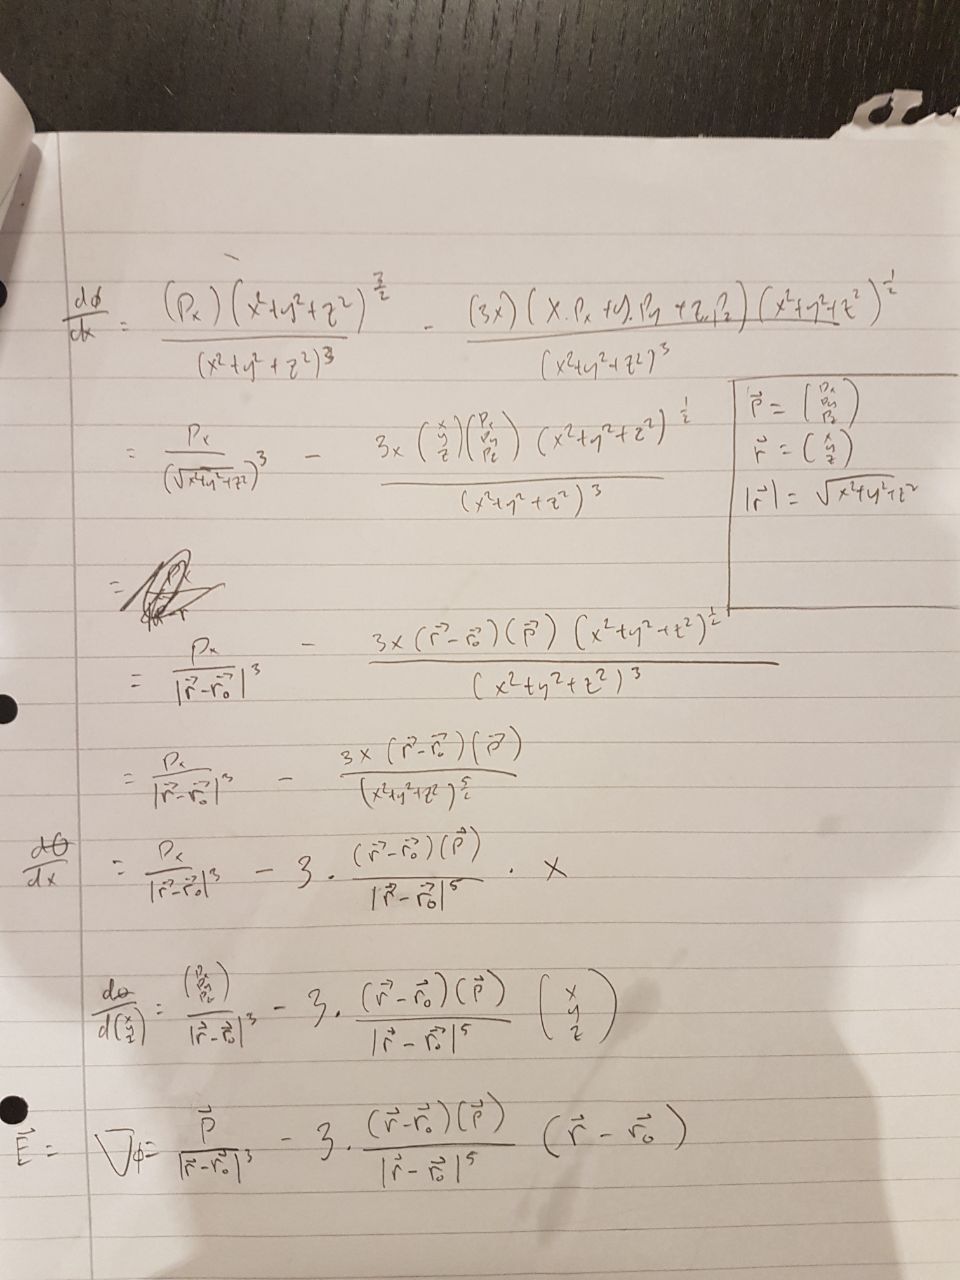 dϕ/dx = (Px)(x²+y²+z²)^(3/2) / (x²+y²+z²)³ - (3x)(x.Px+y.Py+z.Pz)(x²+y²+z²)^(1/2) / (x²+y²+z²)³
= Px / (√x²+y²+z²)³ - 3x (x y z)(Px Py Pz) (x²+y²+z²)^(1/2) / (x²+y²+z²)³
P⃗ = (Px Py Pz)
r⃗ = (x y z)
|r⃗| = √x²+y²+z²
=
= Px / |r⃗-r⃗₀|³ - 3x (r⃗-r⃗₀)(P⃗) (x²+y²+z²)^(1/2) / (x²+y²+z²)³
= Px / |r⃗-r⃗₀|³ - 3x (r⃗-r⃗₀)(P⃗) / (x²+y²+z²)^(5/2)
dθ/dx = Px / |r⃗-r⃗₀|³ - 3 . (r⃗-r⃗₀)(P⃗) / |r⃗-r⃗₀|⁵ . x
dθ/d(x y z) = (Px Py Pz) / |r⃗-r⃗₀|³ - 3 . (r⃗-r⃗₀)(P⃗) / |r⃗-r⃗₀|⁵ (x y z)
E⃗ = ∇ϕ = P⃗ / |r⃗-r⃗₀|³ - 3 . (r⃗-r⃗₀)(P⃗) / |r⃗-r⃗₀|⁵ (r⃗-r⃗₀)